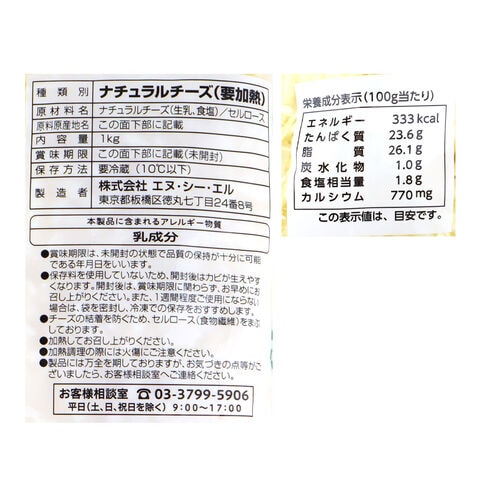 種類別 ナチュラルチーズ(要加熱)
原材料名 ナチュラルチーズ(生乳、食塩)/セルロース
原料原産地名 この面下部に記載
内容量 1kg
賞味期限 この面下部に記載(未開封)
保存方法 要冷蔵(10℃以下)
製造者 株式会社 エヌ・シー・エル
東京都板橋区徳丸七丁目24番8号
本製品に含まれるアレルギー物質
乳成分
●賞味期限は、未開封の状態で品質の保持が十分に可能
である年月日をいいます。
●保存料を使用していないため、開封後はカビが生えやす
くなります。開封後は、賞味期限に関わらず、お早めにお
召し上がりください。また、1週間程度ご使用にならない
場合は、袋を密封し、冷凍での保存をおすすめします。
●チーズの結着を防ぐため、セルロース(食物繊維)をまぶ
しております。
●加熱してお召し上がりください。
●加熱調理の際には火傷にご注意ください。
●製品には万全を期しておりますが、お気づきの点等がご
ざいましたら、お客様相談室へご連絡ください。
お客様相談室 ☎03-3799-5906
平日(土、日、祝日を除く) 9:00~17:00
栄養成分表示(100g当たり)
エネルギー 333kcal
たんぱく質 23.6g
脂質 26.1g
炭水化物 1.0g
食塩相当量 1.8g
カルシウム 770mg
この表示値は、目安です。